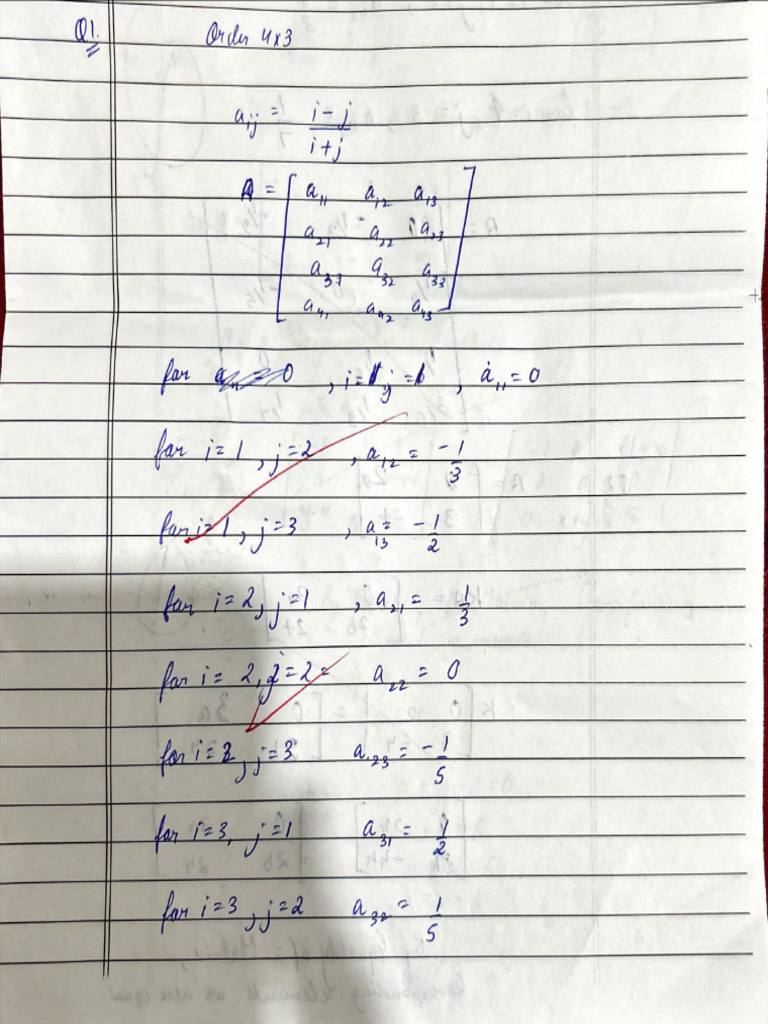 Q1. Order 4x3
aij = i-j / i+j
A = [ a11 a12 a13
a21 a22 a23
a31 a32 a33
a41 a42 a43 ]
for , i=1 j=1 , a11 = 0
for i=1 , j=2 , a12 = -1/3
for i=1, j=3 , a13 = -1/2
for i=2, j=1 , a21 = 1/3
for i= 2, j=2 = a22 = 0
for i=2, j=3 a23 = -1/5
for i=3, j=1 a31 = 1/2
for i=3, j=2 a32 = 1/5